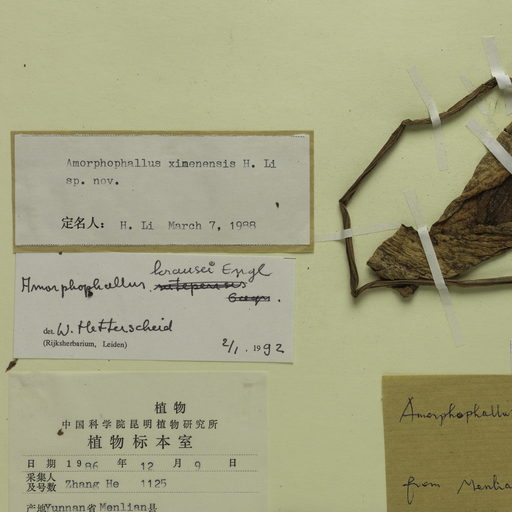 Amorphophallus ximenensis H. Li
sp. nov.
定名人: H. Li March 7, 1988
krausei Engl
Amorphophallus
.
det. W. Hetterscheid
(Rijksherbarium, Leiden) 2/1. 1992
植物
中国科学院昆明植物研究所
植物标本室
日期 1986 年 12 月 9 日
采集人
及号数 Zhang He 1125
产地Yunnan省Menlian县
Amorphophallus
from Menlia